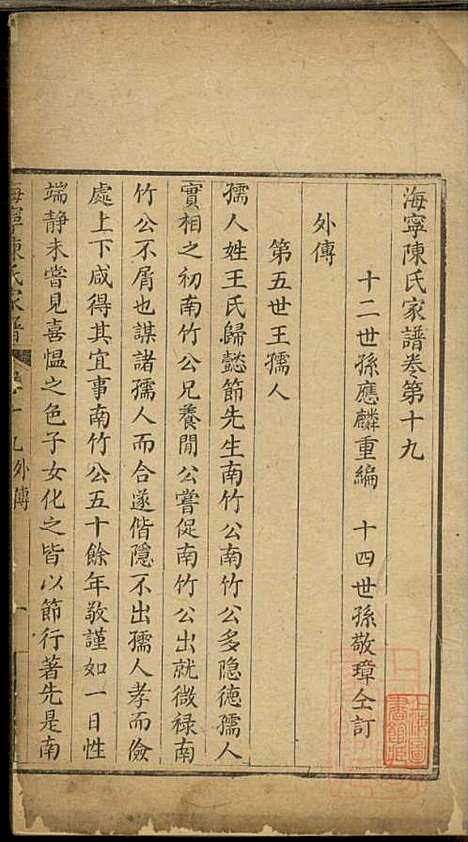 海寧陳氏家譜卷第十九
十二世孫應麟重編　十四世孫敬璋仝訂
外傳
第五世王孺人
孺人姓王氏歸懿節先生南竹公南竹公多隐德孺人
實相之初南竹公兄養閒公嘗促南竹公出就微禄南
竹公不屑也謀諸孺人而合遂偕隱不出孺人孝而儉
處上下咸得其宜事南竹公五十餘年敬謹如一日性
端静未嘗見喜愠之色子女化之皆以節行著先是南
海寧陳氏家譜　十九外傳　一
上海圖書館藏